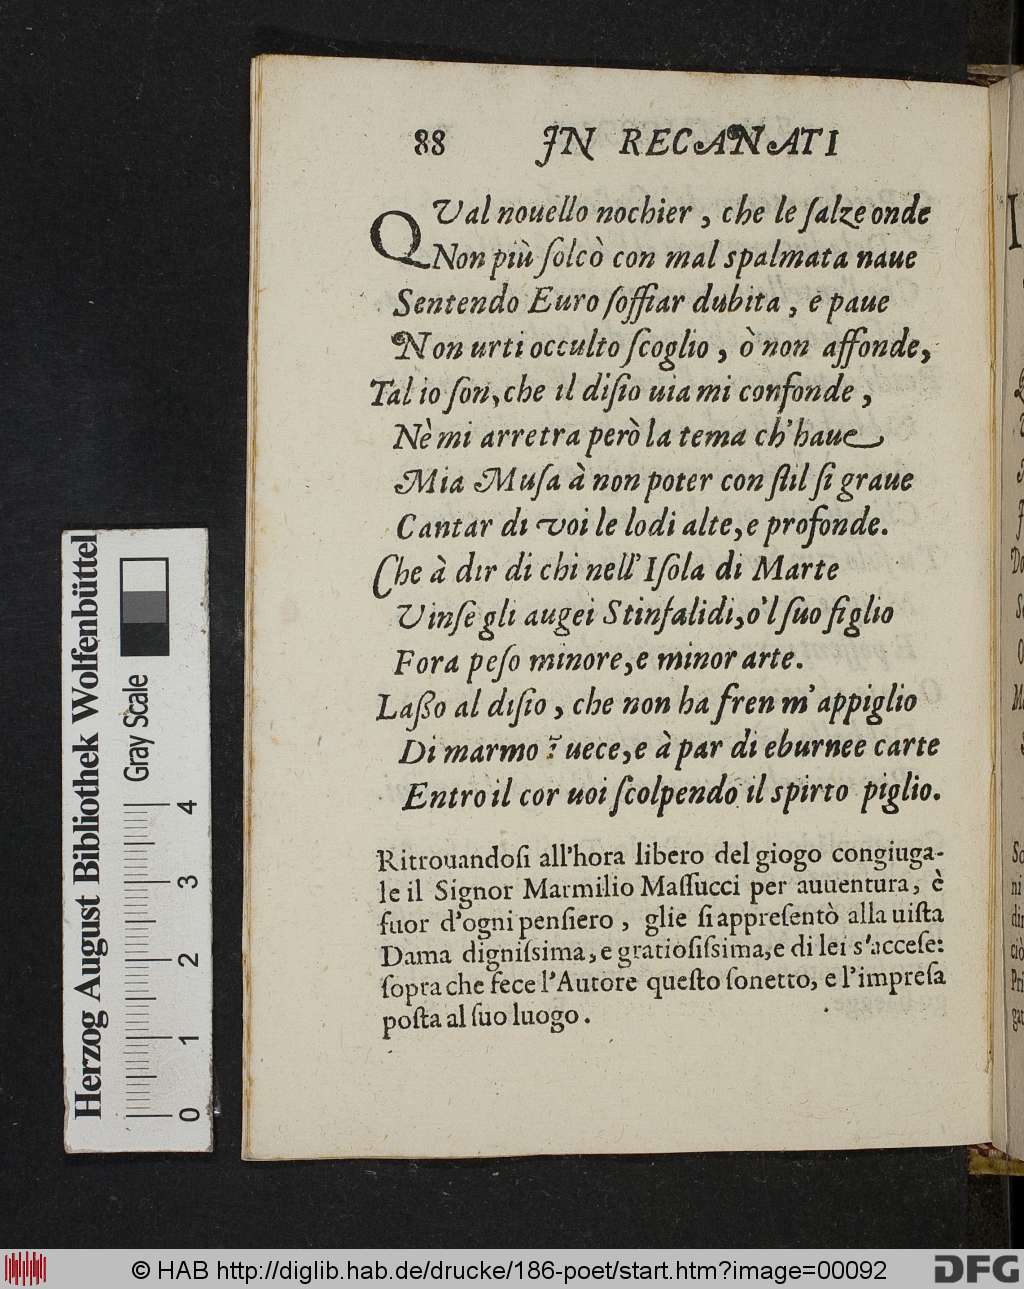 88 IN RECANATI
QVal nouello nochier, che le ſalze onde
Non più ſolcò con mal spalmata naue
Sentendo Euro ſoffiar dubita, e paue
Non urti occulto ſcoglio, ò non affonde,
Tal io ſon, che il diſio uia mi confonde,
Nè mi arretra però la tema ch'haue
Mia Muſa à non poter con ſtil ſi graue
Cantar di voi le lodi alte, e profonde.
Che à dir di chi nell' Iſola di Marte
Vinſe gli augei Stinfalidi, o'l ſuo figlio
Fora peſo minore, e minor arte.
Laßo al diſio, che non ha fren m'appiglio
Di marmo ĩ uece, e à par di eburnee carte
Entro il cor uoi ſcolpendo il spirto piglio.
Ritrouandoſi all'hora libero del giogo congiuga-
le il Signor Marmilio Maſſucci per auuentura, è
fuor d'ogni penſiero, glie ſi appreſentò alla uiſta
Dama digniſsima, e gratioſiſsima, e di lei s'acceſe:
ſopra che fece l'Autore queſto ſonetto, e l'impreſa
poſta al ſuo luogo.
Herzog August Bibliothek Wolfenbüttel
Gray Scale
0 1 2 3 4
© HAB http://diglib.hab.de/drucke/186-poet/start.htm?image=00092
DFG